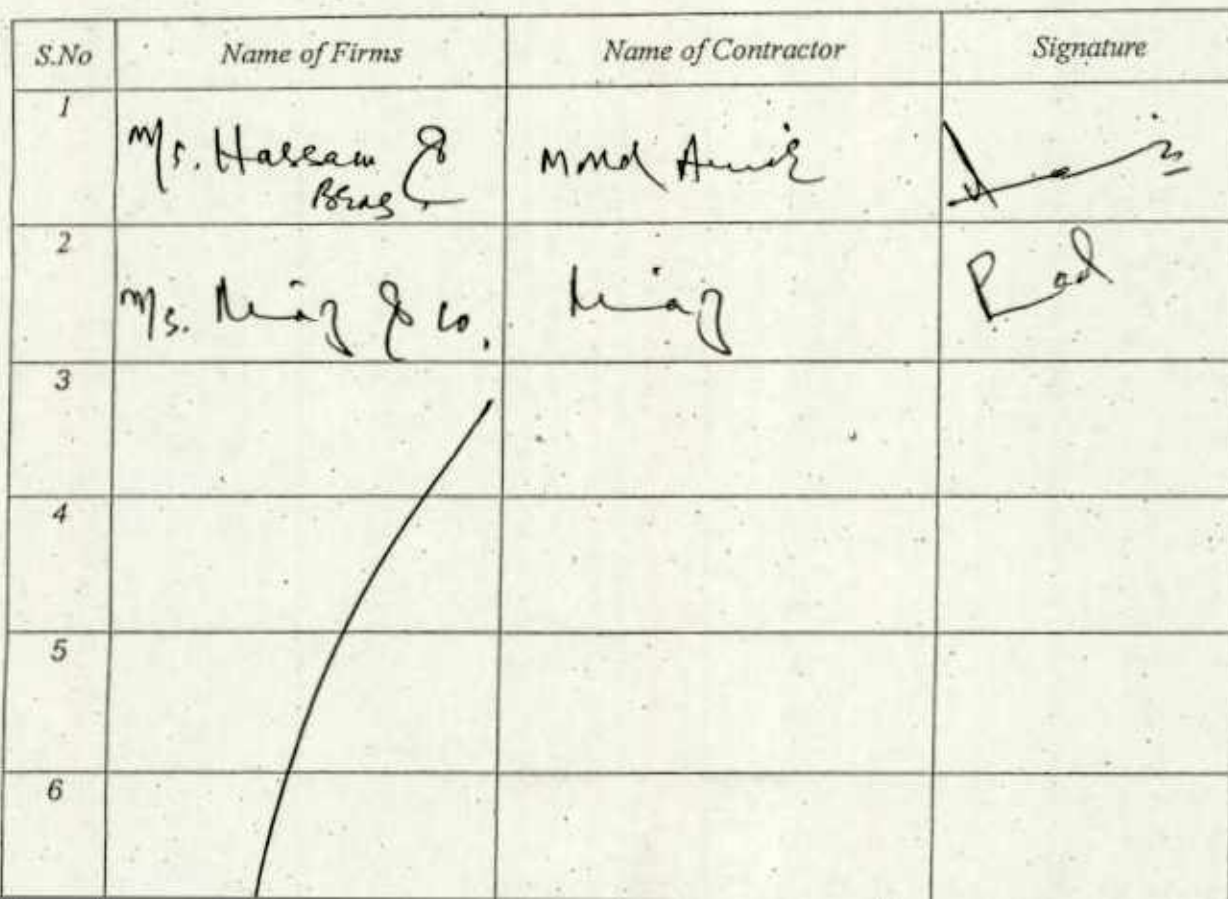 S.No Name of Firms Name of Contractor Signature
1 M/s. Hassam & Bros Mohd
2 M/s. Niaz & Co. Niaz
3
4
5
6